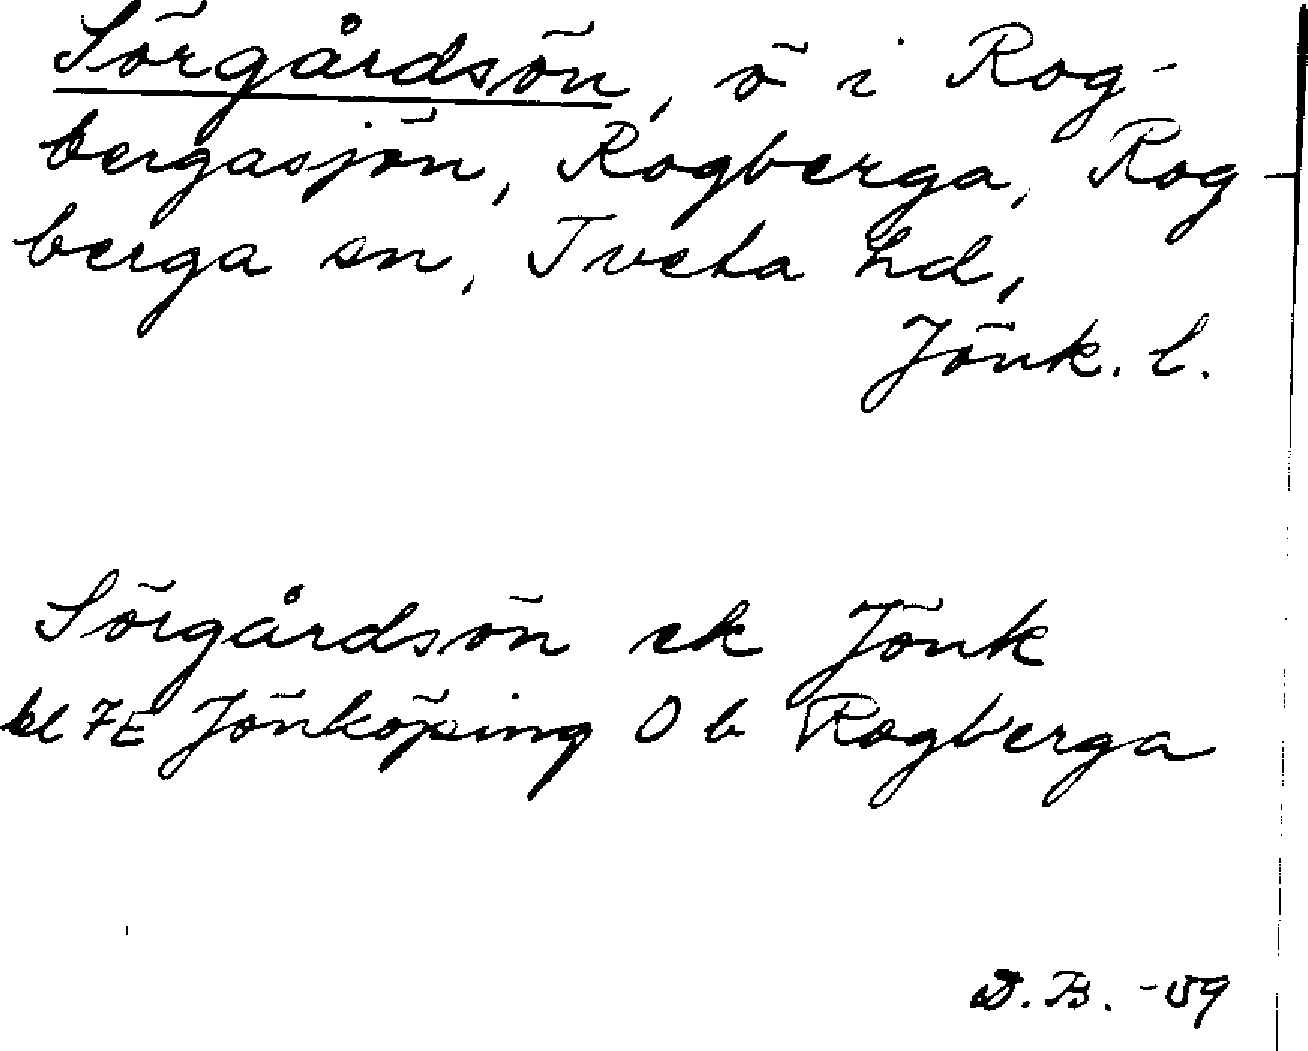 Sörgårdsön, ö i Rog-
bergasjön, Rogberga, Rog-
berga sn, Tveta hd,
Jönk. l.
Sörgårdsön ek Jönk
bl 7E Jönköping O b Rogberga
D. B. -59